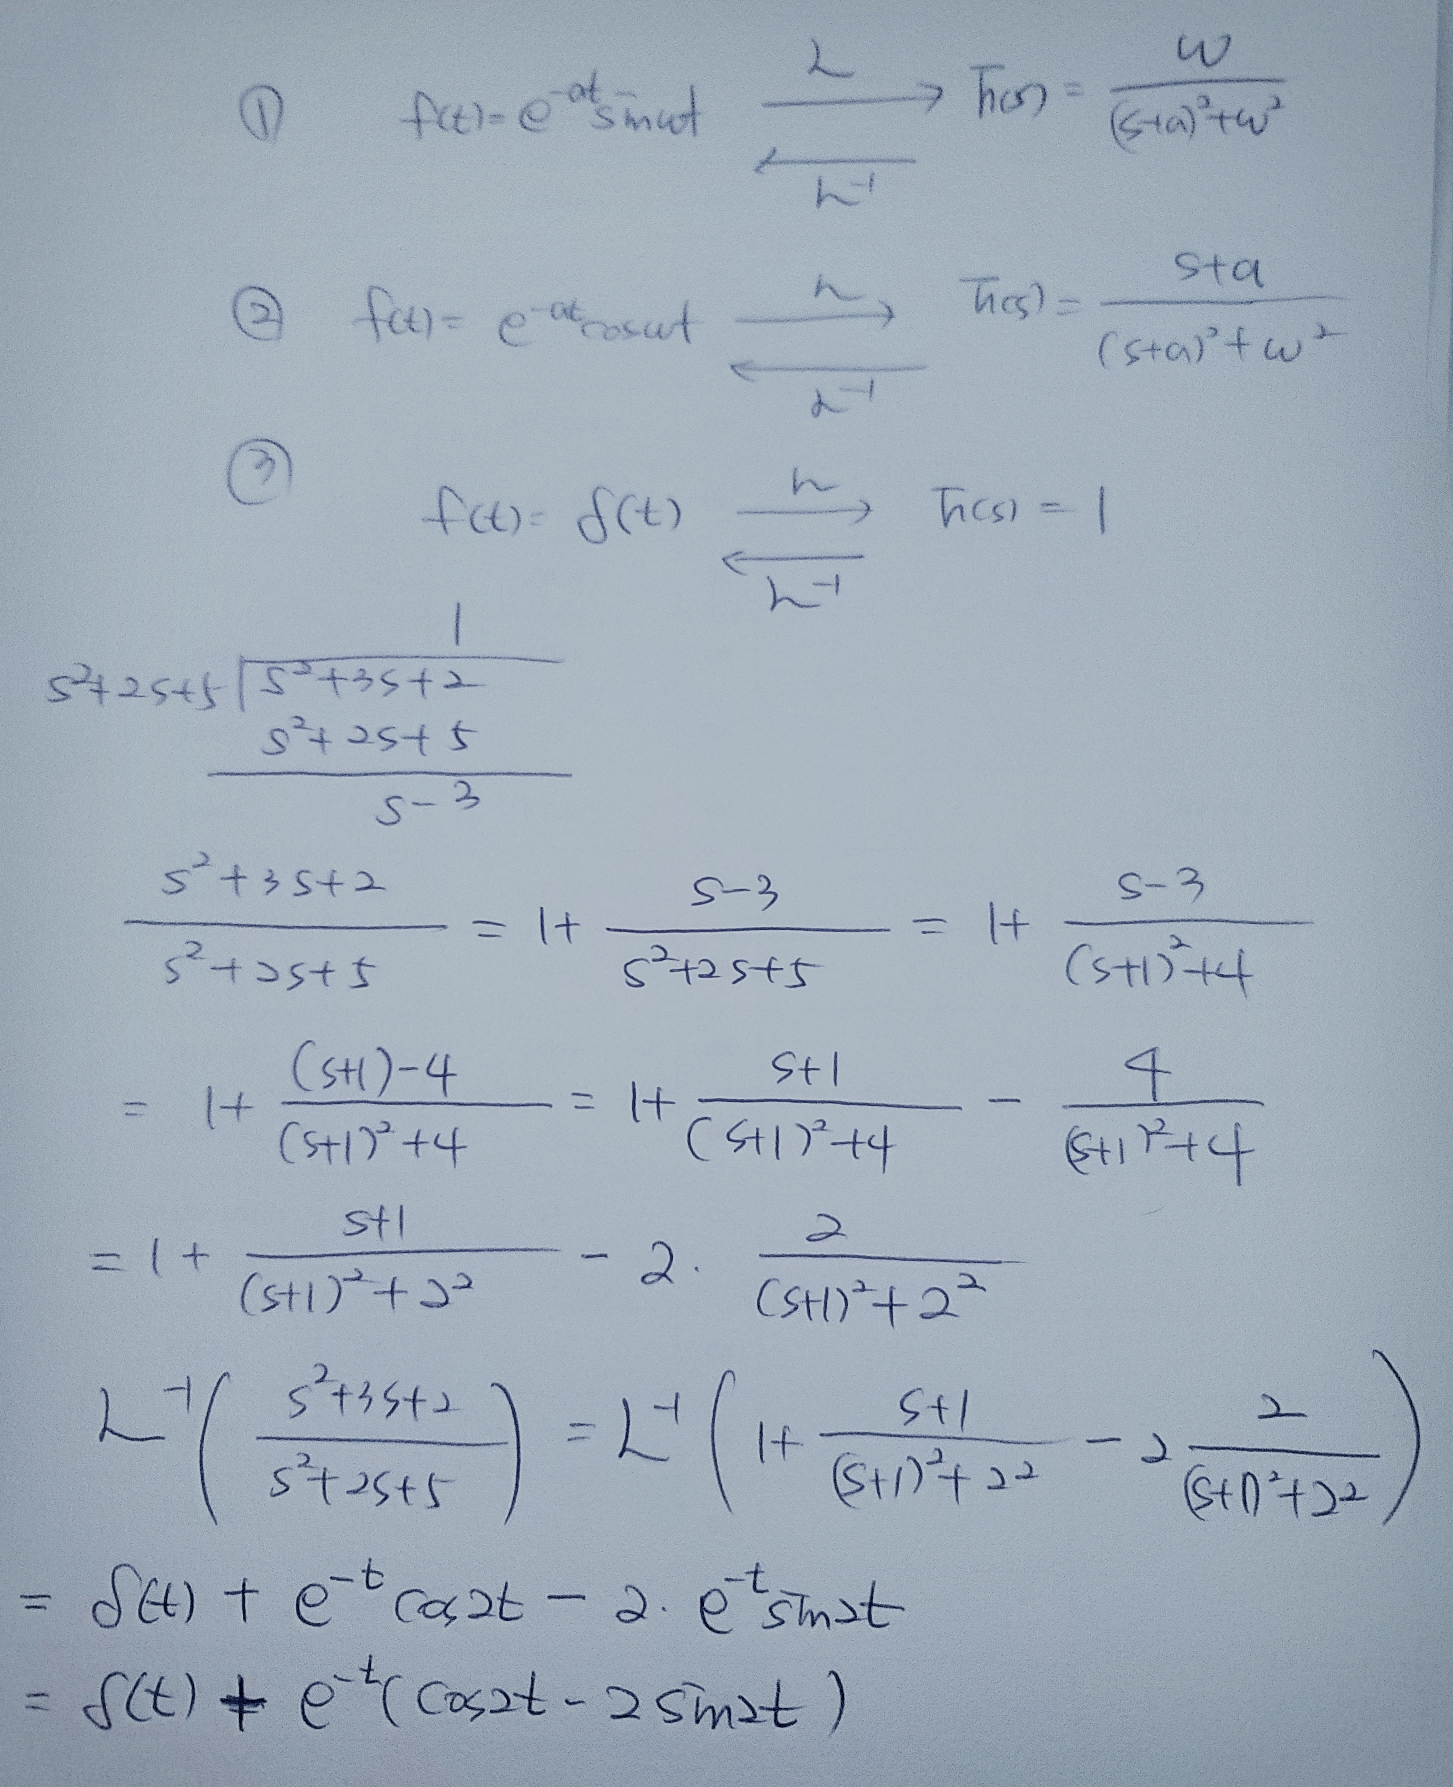 ① f(t) = e^{-at} sin ωt ⟶ F(s) = ω / ((s+a)² + ω²)
L
L⁻¹
② f(t) = e^{-at} cos ωt ⟶ F(s) = (s+a) / ((s+a)² + ω²)
L
L⁻¹
③ f(t) = δ(t) ⟶ F(s) = 1
L
L⁻¹
1
s²+2s+5 | s²+3s+2
s²+2s+5
s-3
(s²+3s+2) / (s²+2s+5) = 1+ (s-3) / (s²+2s+5) = 1+ (s-3) / ((s+1)²+4)
= 1+ ((s+1)-4) / ((s+1)²+4) = 1+ (s+1) / ((s+1)²+4) - 4 / ((s+1)²+4)
= 1+ (s+1) / ((s+1)²+2²) - 2· 2 / ((s+1)²+2²)
L⁻¹( (s²+3s+2) / (s²+2s+5) ) = L⁻¹( 1+ (s+1) / ((s+1)²+2²) - 2 2 / ((s+1)²+2²) )
= δ(t) + e^{-t} cos2t - 2· e^{-t} sin2t
= δ(t) + e^{-t}( cos2t - 2 sin2t )